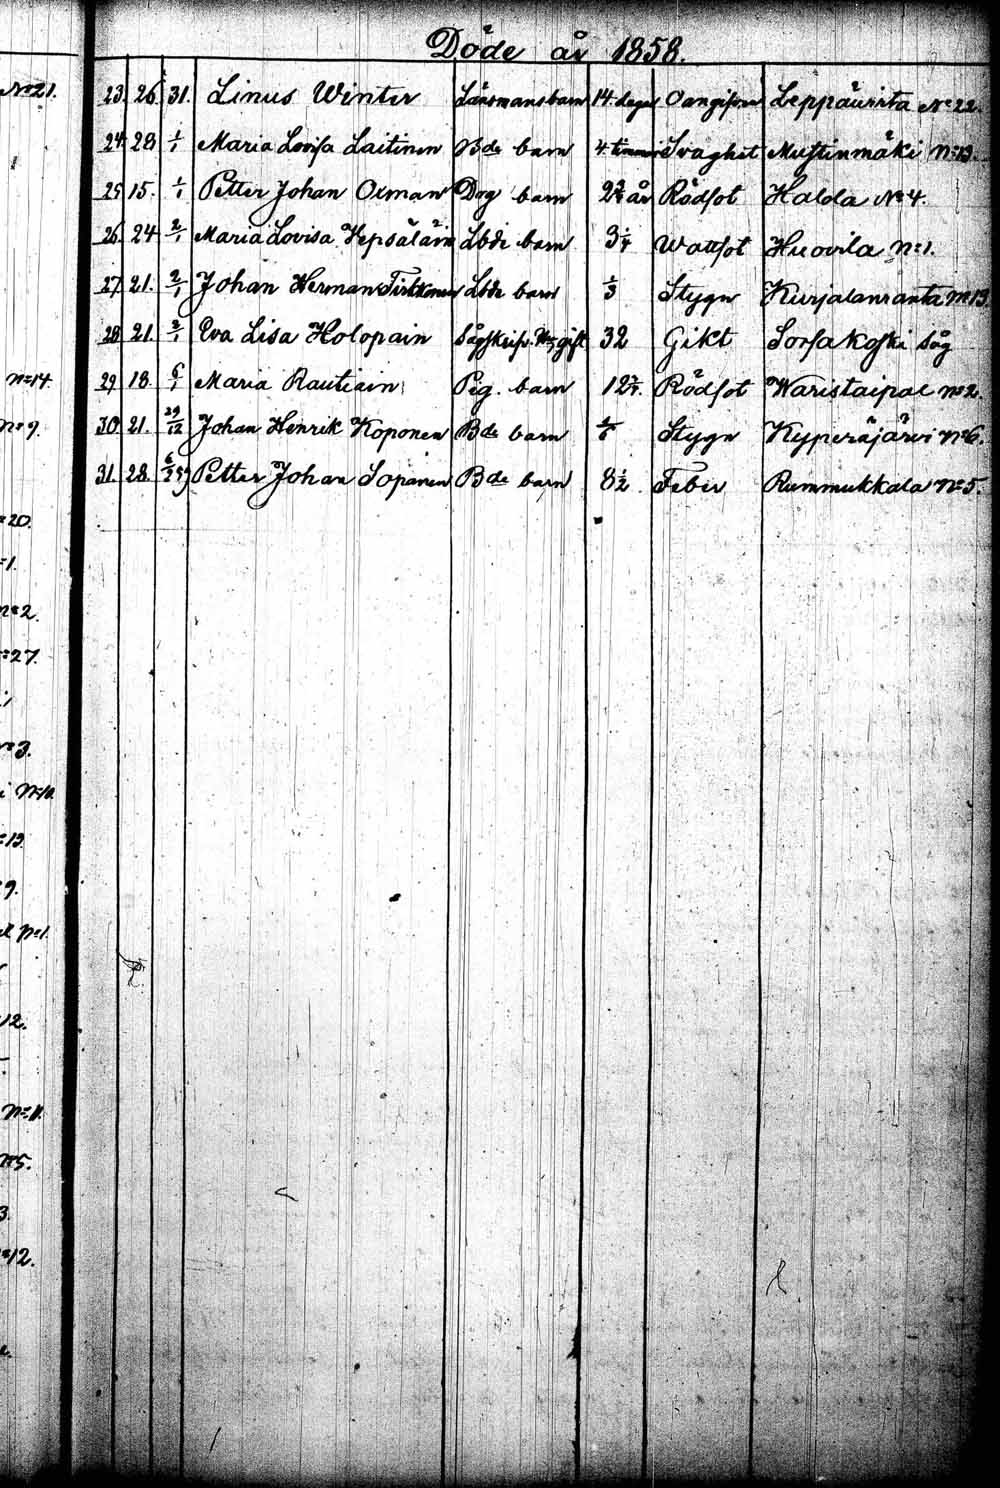 Döde år 1858.
23. 26. 31. Linus Winter Länsmansbarn 14 dagar Oangifven Leppäwirta No 22.
24. 28. 1/1 Maria Lovisa Laitinen Bde barn 4. timmar Svaghet Mustinmäki No 13.
25. 15. 1/1 Petter Johan Oxman Dog barn år Rödsot Halola No 4.
26. 24 2/1 Maria Lovisa Hepsäläin Lbde barn 3 1/4 Wattsot Huovila No 1.
27. 21. 2/1 Johan Herman Tirkkonen Lbde barn 1/3 Stygn Kurjalanranta No 13
28. 21. 2/1 Eva Lisa Holopain gift 32 Gikt Sorsakoski Såg
29. 18. 6/1 Maria Rautiain Pig. barn Rödsot Waristaipal No 2.
30. 21. 29/12 Johan Henrik Koponen Bde barn Stygn Kyperäjärvi No 6.
31. 28. Petter Johan Sopanen Bde barn 8 1/2 Feber Rummukkala No 5.
No 21.
No 14.
No 9.
20.
1.
No 2.
27.
3.
No 10.
13.
9.
No 1.
12.
No 11.
No 5.
3.
12.